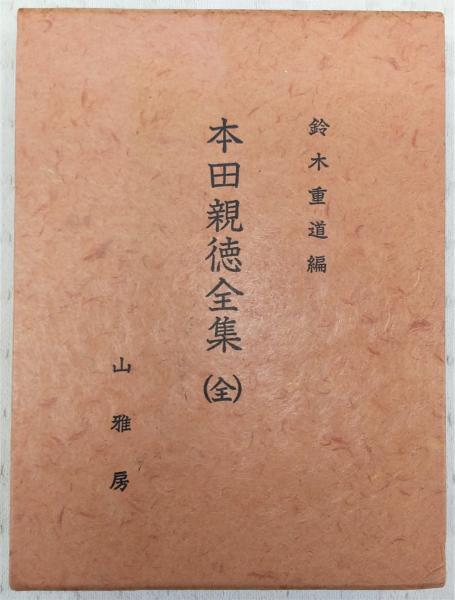 鈴木重道編
本田親徳全集(全)
山雅房